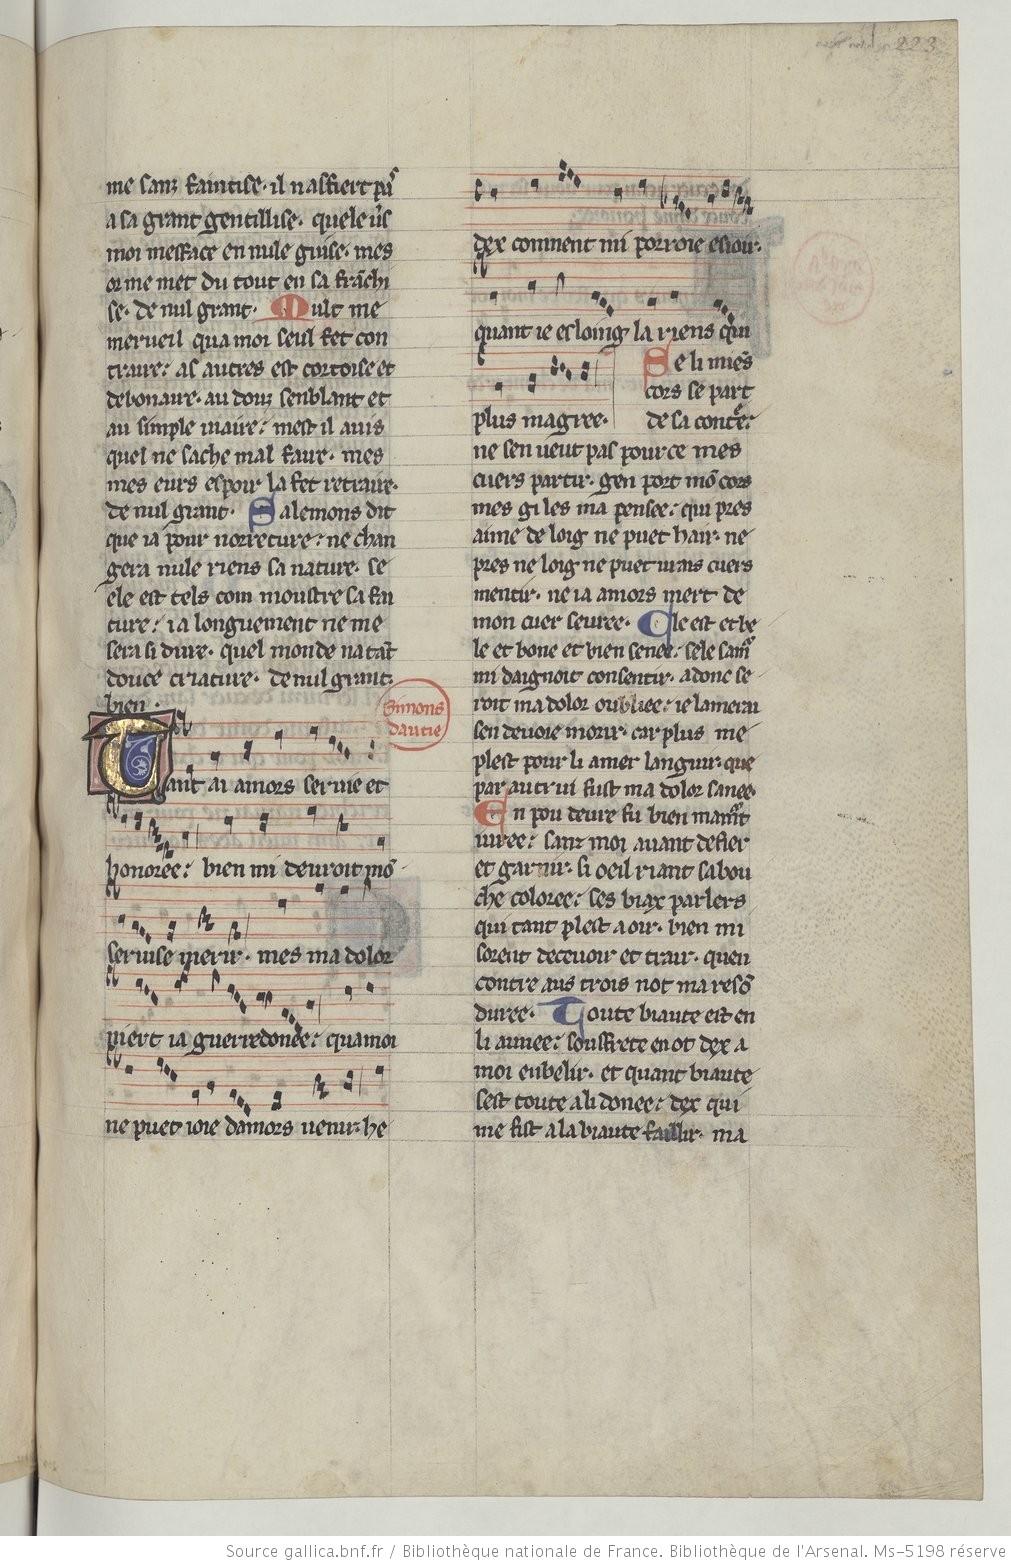 223
me sanz faintise· il nafiert pas
a sa grant gentillise· quele uers
moi mesface en nule guise· mes
or me met du tout en sa franchi
se· de nul grant· Mult me
merueil qua moi seul fet con
traire: as autres est cortoise et
debonaire· au douz senblant et
au simple uiaire: mest il auis
quel ne sache mal faire· mes
mes eurs espoir la fet retraire·
de nul grant· Salemons dit
que ia pour norreture: ne chan
gera nule riens sa nature· se
ele est tels com moustre sa fai
ture: ia longuement ne me
sera si dure· quel monde na tant
douce criature· de nul grant
bien·
Simons
dautie
Tant ai amors seruie et
honoree: bien mi deuroit mō
seruise merir· mes ma dolor
niert ia guerredonee: qua moi
ne puet ioie damors uenir· he
dex comment mi porroie esioir·
quant ie esloing la riens qui
plus magree·
Se li mies
cors se part
de sa contree:
ne sen ueut pas pour ce mes
cuers partir· gen port mō cors
mes gi les ma pensee: qui pres
aime de loig ne puet hair· ne
pres ne loig ne puet urais cuers
mentir· ne ia amors niert de
mon cuer seuree· Ele est et be
le et bone et bien senee: sele sanz
mi daignoit consentir· adonc se
roit ma dolor oubliee: ie lamerai
sen deuoie morir· car plus me
plest pour li amer languir· que
par autrui fust ma dolor sanee·
En pou deure fu bien mamort
iuree: sanz moi auant defier
et garnir· si oeil riant sa bou
che coloree: ses biax parlers
qui tant plest a oir· bien mi
sorent deceuoir et trair· quen
contre aus trois not ma resō
duree· Toute biaute est en
li aunee: souffrete en ot dex a
moi enbelir· et quant biaute
sest toute a li donee: dex qui
me fist a la biaute faillir· ma
Source gallica.bnf.fr / Bibliothèque nationale de France. Bibliothèque de l'Arsenal. Ms-5198 réserve